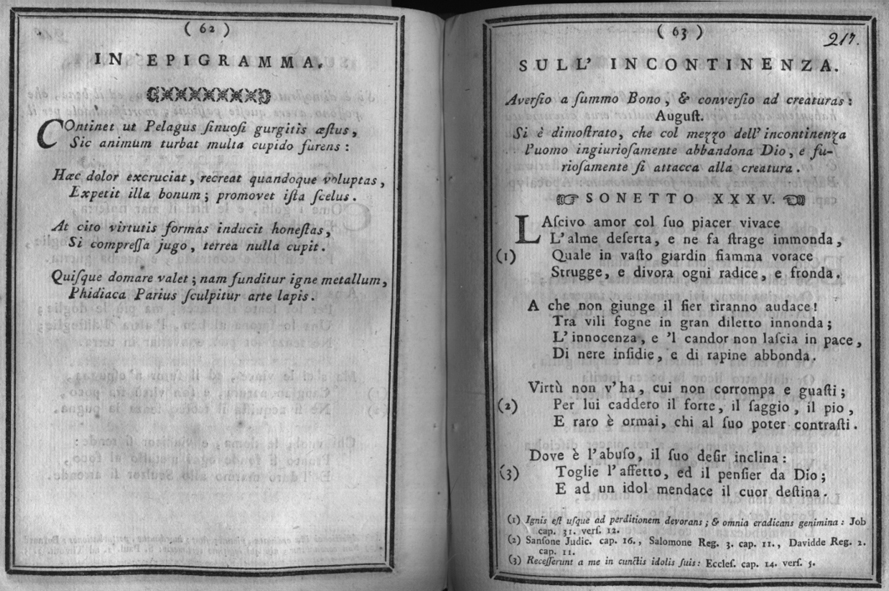 ( 62 )
IN EPIGRAMMA.
COntinet ut Pelagus ſinuoſi gurgitis æſtus,
Sic animum turbat multa cupido furens :
Hæc dolor excruciat, recreat quandoque voluptas,
Expetit illa bonum ; promovet iſta ſcelus.
At cito virtutis formas inducit honeſtas,
Si compreſſa jugo, terrea nulla cupit.
Quiſque domare valet ; nam funditur igne metallum,
Phidiaca Parius ſculpitur arte lapis.
( 63 )
217.
SULL' INCONTINENZA.
Averſio a ſummo Bono, & converſio ad creaturas :
Auguſt.
Si è dimoſtrato, che col mezzo dell' incontinenza
l'uomo ingiurioſamente abbandona Dio, e fu-
rioſamente ſi attacca alla creatura.
SONETTO XXXV.
LAſcivo amor col ſuo piacer vivace
L'alme deſerta, e ne fa ſtrage immonda,
(1) Quale in vaſto giardin fiamma vorace
Strugge, e divora ogni radice, e fronda.
A che non giunge il fier tiranno audace!
Tra vili fogne in gran diletto innonda ;
L'innocenza, e 'l candor non laſcia in pace,
Di nere inſidie, e di rapine abbonda.
Virtù non v'ha, cui non corrompa e guaſti ;
(2) Per lui caddero il forte, il ſaggio, il pio,
E raro è ormai, chi al ſuo poter contraſti.
Dove è l'abuſo, il ſuo deſir inclina :
(3) Toglie l'affetto, ed il penſier da Dio ;
E ad un idol mendace il cuor deſtina.
(1) Ignis eſt uſque ad perditionem devorans ; & omnia eradicans genimina : Job
cap. 31. verſ. 12.
(2) Sanſone Judic. cap. 16., Salomone Reg. 3. cap. 11., Davidde Reg. 2.
cap. 11.
(3) Receſſerunt a me in cunctis idolis ſuis : Eccleſ. cap. 14. verſ. 5.